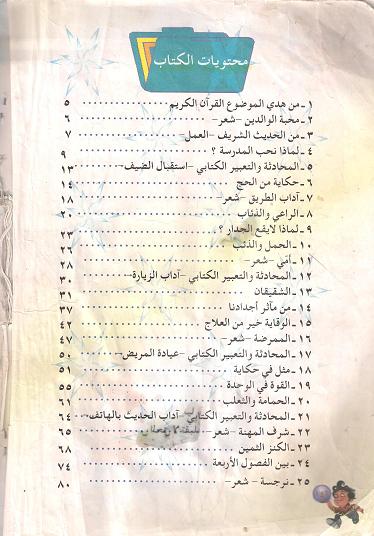 محتويات الكتاب
١ - من هدي الموضوع القرآن الكريم ........ ٥
٢ - محبة الوالدين - شعر - ........ ٦
٣ - من الحديث الشريف - العمل - ........ ٧
٤ - لماذا نحب المدرسة ؟ ........ ٩
٥ - المحادثة والتعبير الكتابي - استقبال الضيف - ........ ١٣
٦ - حكاية من الحج ........ ١٤
٧ - آداب الطريق - شعر - ........ ١٨
٨ - الراعي والذئاب ........ ٢٠
٩ - لماذا لايقع الجدار ؟ ........ ٢٣
١٠ - الحمل والذئب ........ ٢٦
١١ - أمّي - شعر - ........ ٢٨
١٢ - المحادثة والتعبير الكتابي - آداب الزيارة - ........ ٣٠
١٣ - الشقيقان ........ ٣١
١٤ - من مآثر أجدادنا ........ ٣٧
١٥ - الوقاية خير من العلاج ........ ٤٢
١٦ - الممرضة - شعر - ........ ٤٧
١٧ - المحادثة والتعبير الكتابي - عيادة المريض - ........ ٥٠
١٨ - مثل في حكاية ........ ٥١
١٩ - القوة في الوحدة ........ ٥٥
٢٠ - الحمامة والثعلب ........ ٦١
٢١ - المحادثة والتعبير الكتابي - آداب الحديث بالهاتف - ........ ٦٤
٢٢ - شرف المهنة - شعر - ........ ٦٥
٢٣ - الكنز الثمين ........ ٦٨
٢٤ - بين الفصول الأربعة ........ ٧٤
٢٥ - نرجسة - شعر - ........ ٨٠